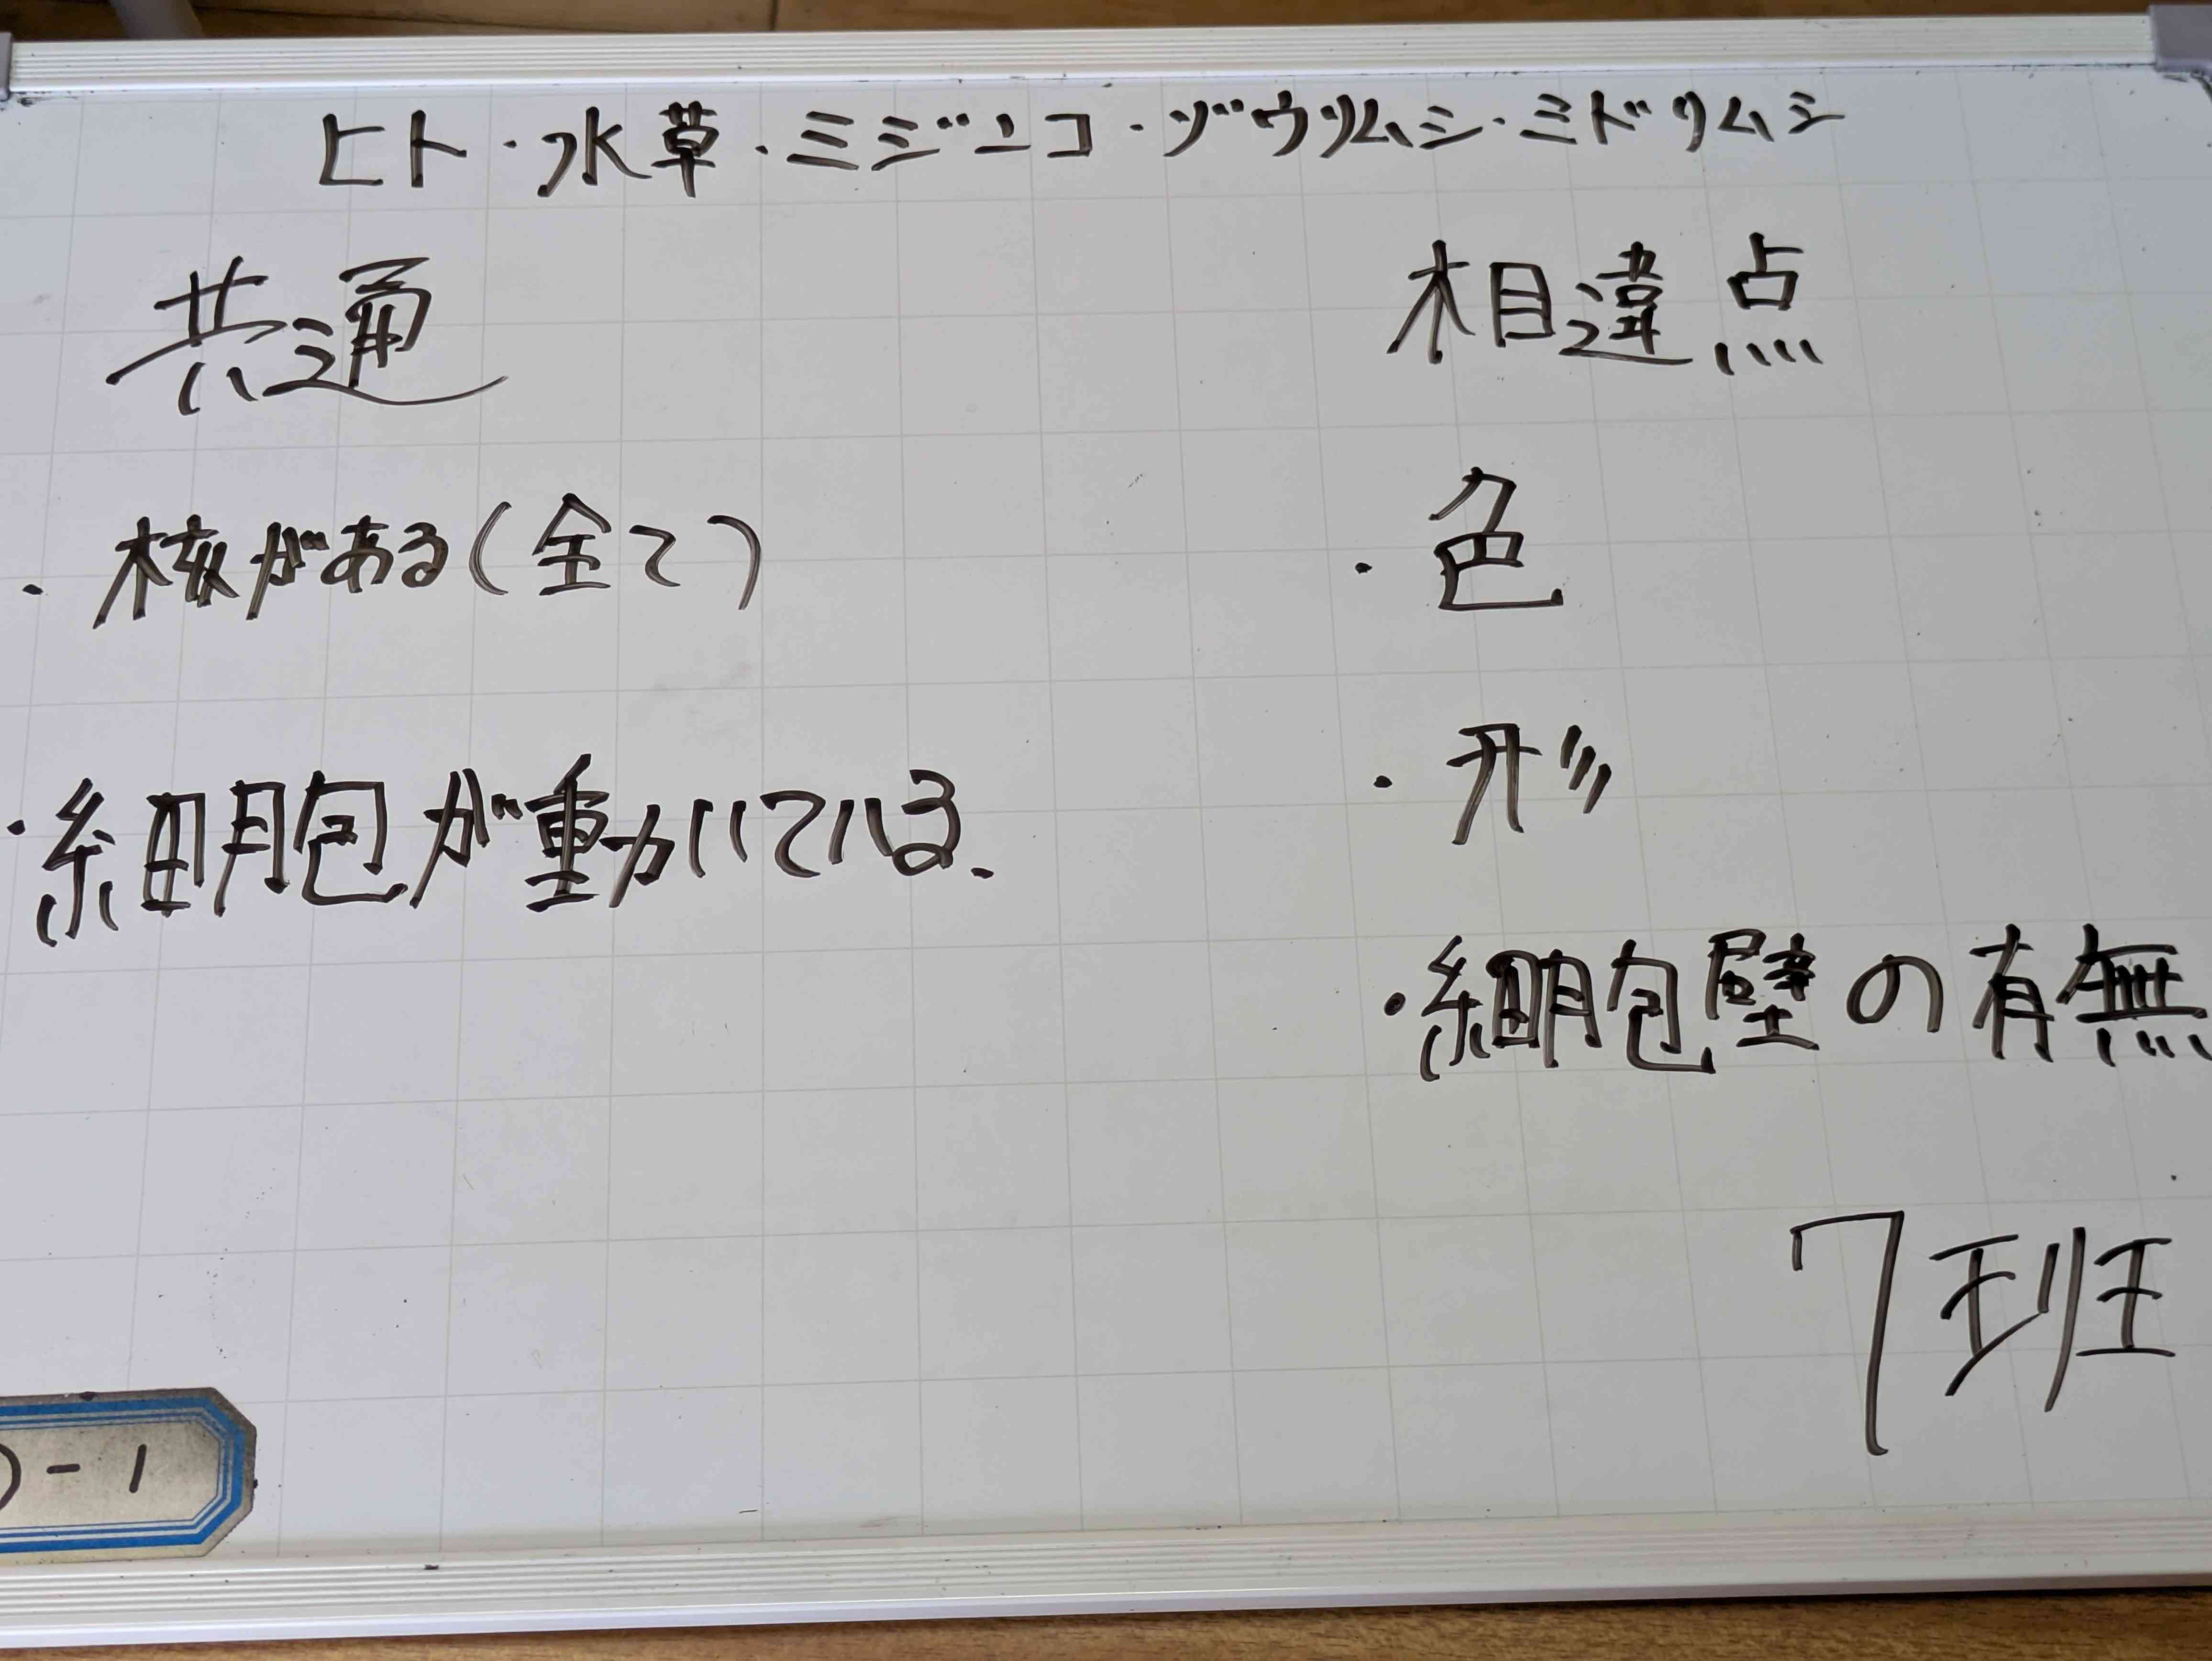 ヒト・水草・ミジンコ・ゾウリムシ・ミドリムシ
共通
・核がある(全て)
・細胞が動いている.
相違点
・色
・形
・細胞壁の有無
7班
-1